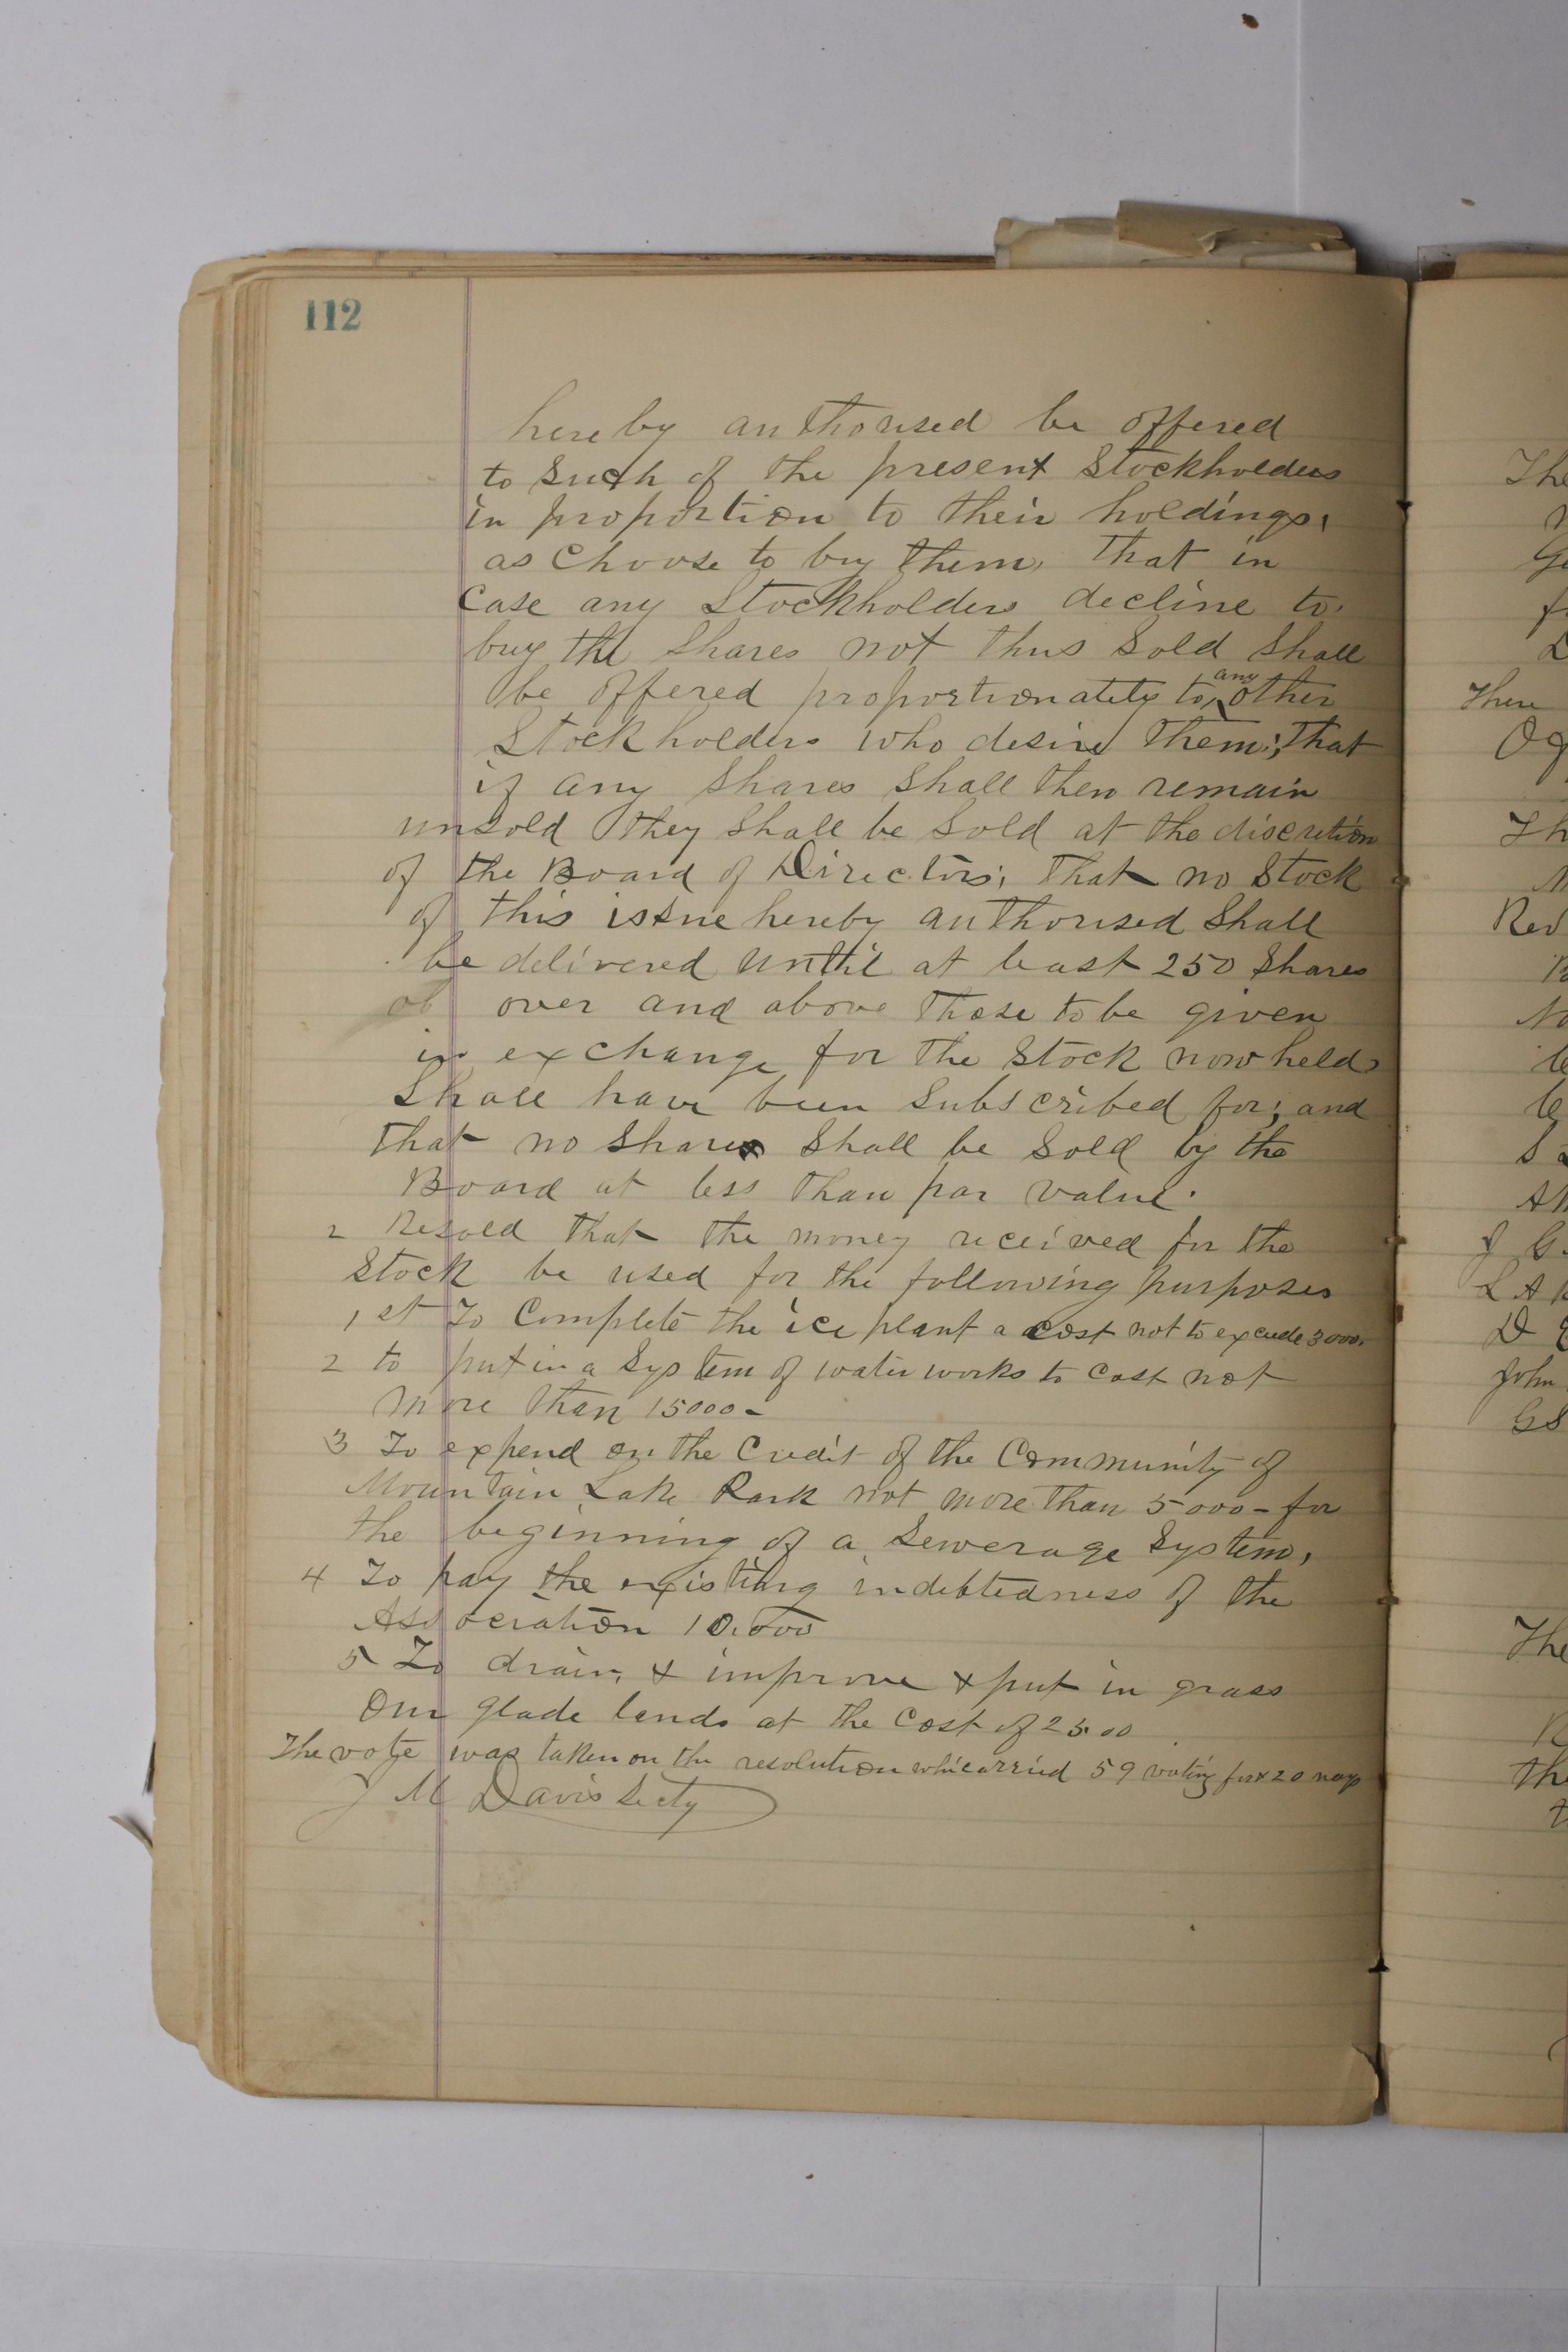 112
hereby authorised be offered
to such of the present Stockholders
in proportion to their holdings,
as choose to buy them, that in
Case any Stockholders decline to
buy the shares not thus sold shall
be offered proportionately to any other
Stockholders who desire them; that
if any shares shall then remain
unsold they shall be sold at the discretion
of the Board of Directors; that no Stock
of this issue hereby authorised shall
be delivered until at least 250 Shares
over and above those to be given
in exchange for the Stock now held
Shall have been Subscribed for; and
that no shares shall be sold by the
Board at less than par value.
2 Resold that the money received for the
Stock be used for the following purposes
1st To Complete the ice plant a cost not to exceede 3000.
2 to put in a System of water works to cost not
more than 15000-
3 To expend on the Credit of the Community of
Mountain Lake Park not more than 5000- for
the beginning of a Sewerage System,
4 To pay the existing indebtedness of the
Association 10.000
5 To drain & improve & put in grass
Our glade lands at the cost of 2500
The vote was taken on the resolution whicarried 59 voting for & 20 nays
J M Davis Secty
The
There
Rev
John
G S
The